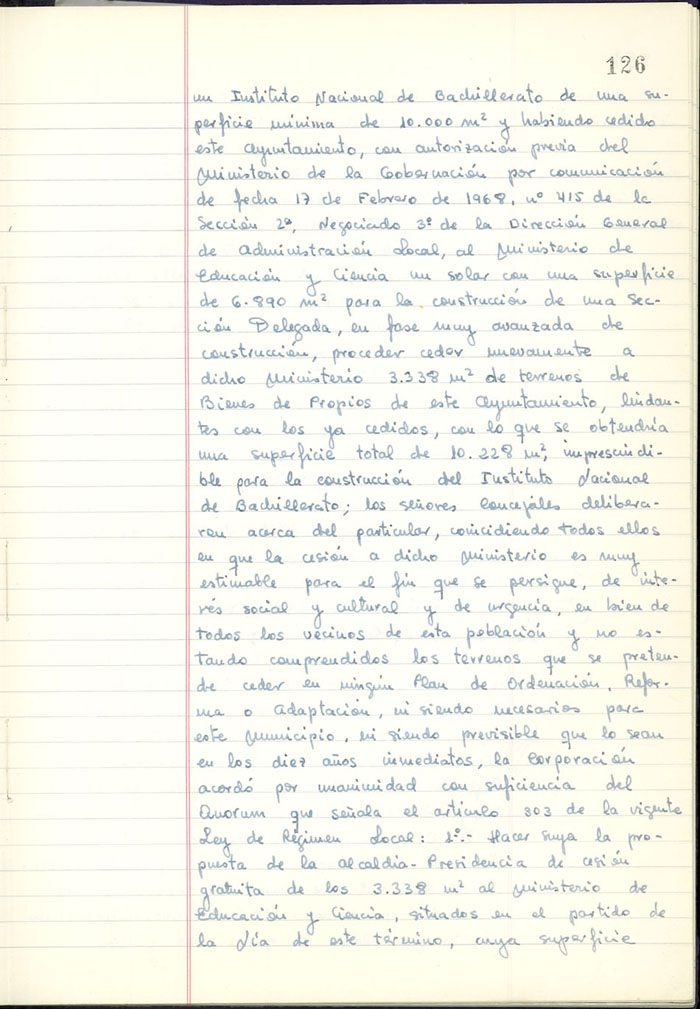 126
un Instituto Nacional de Bachillerato de una su-
perficie mínima de 10.000 m² y habiendo cedido
este Ayuntamiento, con autorización previa del
Ministerio de la Gobernación por comunicación
de fecha 17 de Febrero de 1968, nº 415 de la
Sección 2ª, Negociado 3º de la Dirección General
de Administración Local, al Ministerio de
Educación y Ciencia un solar con una superficie
de 6.890 m² para la construcción de una Sec-
ción Delegada, en fase muy avanzada de
construcción, proceder ceder nuevamente a
dicho Ministerio 3.338 m² de terrenos de
Bienes de Propios de este Ayuntamiento, lindan-
tes con los ya cedidos, con lo que se obtendría
una superficie total de 10.228 m², imprescindi-
ble para la construcción del Instituto Nacional
de Bachillerato; los señores Concejales delibera-
ron acerca del particular, coincidiendo todos ellos
en que la cesión a dicho Ministerio es muy
estimable para el fin que se persigue, de inte-
rés social y cultural y de urgencia, en bien de
todos los vecinos de esta población y no es-
tando comprendidos los terrenos que se preten-
de ceder en ningún Plan de Ordenación, Refor-
ma o Adaptación, ni siendo necesarios para
este Municipio, ni siendo previsible que lo sean
en los diez años inmediatos, la Corporación
acordó por unanimidad con suficiencia del
Quorum que señala el artículo 303 de la vigente
Ley de Régimen Local: 1º.- Hacer suya la pro-
puesta de la Alcaldía-Presidencia de cesión
gratuita de los 3.338 m² al Ministerio de
Educación y Ciencia, situados en el partido de
la Vía de este término, cuya superficie